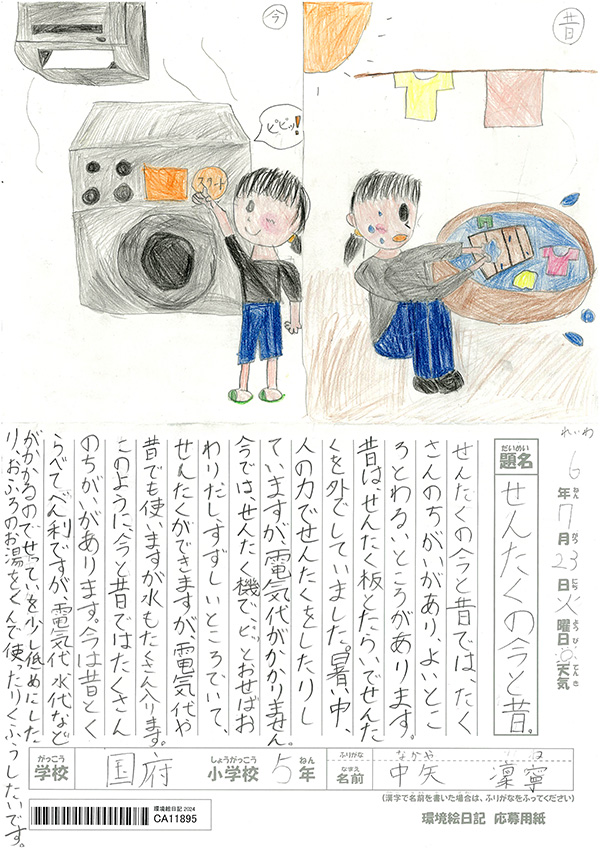 今
昔
ピピッ!
スタート
れいわ
6年7月23日火曜日 天気
ねん がつ にち ようび てんき
だいめい
題名
せんたくの今と昔。
せんたくの今と昔では、たく
さんのちがいがあり、よいとこ
ろとわるいところがあります。
昔は、せんたく板とたらいでせんた
くを外でしていました。暑い中、
人の力でせんたくをしたりし
ていますが、電気代がかかりません。
今では、せんたく機で、ピッとおせばお
わりだし、すずしいところでいて、
せんたくができますが、電気代や
昔でも使いますが水もたくさん入ります。
このように、今と昔ではたくさん
のちがいがあります。今は昔とく
らべてべん利ですが、電気代、水代など
がかかるのでせっていを少し低めにした
り、おふろのお湯をくんで使ったりくふうしたいです。
がっこう しょうがっこう ねん ふりがな なかや
学校 国府 小学校 5年 なまえ 名前 中矢 凜寧
(漢字で名前を書いた場合は、ふりがなをふってください)
環境絵日記 2024
CA11895
環境絵日記 応募用紙